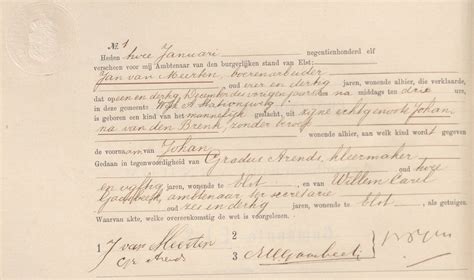 № 1
Heden twee Januari negentienhonderd elf
verscheen voor mij Ambtenaar van den burgerlijken stand van Elst:
Jan van Meerten, boerenarbeider
oud vier en dertig jaren, wonende alhier, die verklaarde,
dat op een en dertig December vorig jaar des na middags ten drie ure,
in deze gemeente Wijk A Stationsweg
is geboren een kind van het mannelijk geslacht, uit zijne echtgenoote Johan-
na van den Brenk, zonder beroep
wonende alhier, aan welk kind wordt gegeven
de voornaam van Johan
Gedaan in tegenwoordigheid van Gradus Arends, kleermaker
oud twee
en vijftig jaren, wonende te Elst, en van Willem Carel
ambtenaar ter secretarie
oud zes en dertig jaren, wonende te Elst, als getuigen.
Waarvan akte, welke overeenkomstig de wet is voorgelezen.
1 J van Meerten 2
G Arends 3